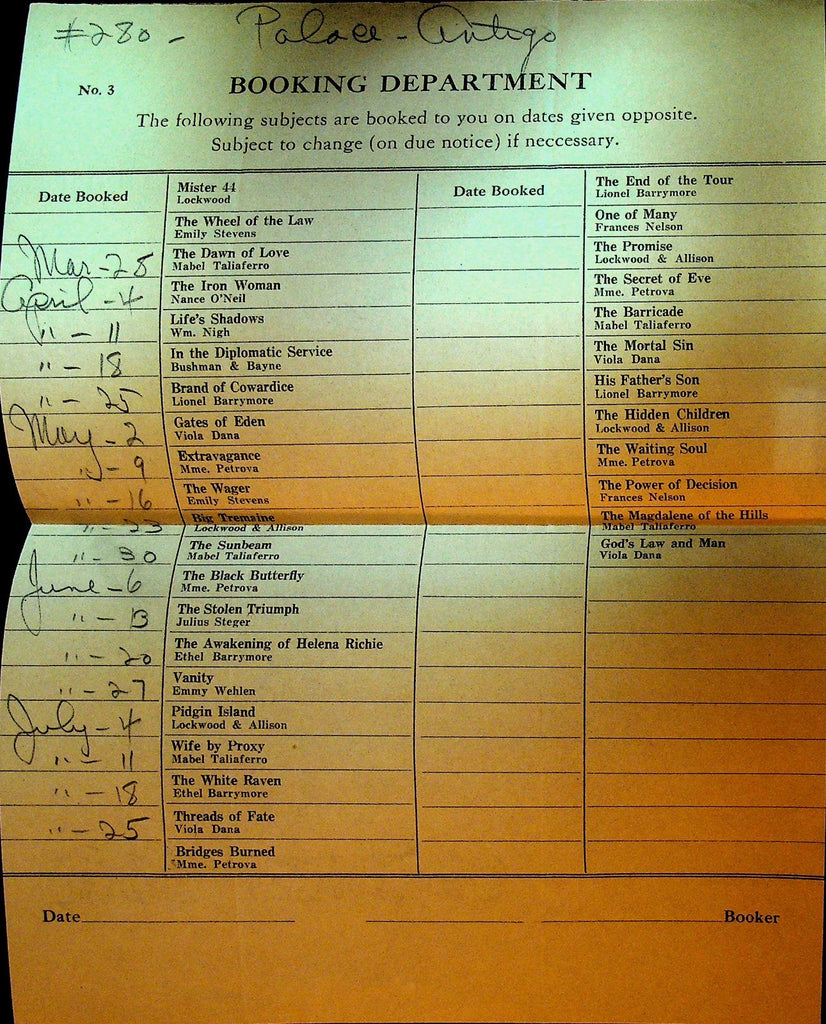 #280 - Palace - Antigo
No. 3
BOOKING DEPARTMENT
The following subjects are booked to you on dates given opposite.
Subject to change (on due notice) if neccessary.
Date Booked
Mister 44
Lockwood
The Wheel of the Law
Emily Stevens
Mar - 28
The Dawn of Love
Mabel Taliaferro
April - 4
The Iron Woman
Nance O'Neil
" - 11
Life's Shadows
Wm. Nigh
" - 18
In the Diplomatic Service
Bushman & Bayne
" - 25
Brand of Cowardice
Lionel Barrymore
May - 2
Gates of Eden
Viola Dana
" - 9
Extravagance
Mme. Petrova
" - 16
The Wager
Emily Stevens
" - 23
Big Tremaine
Lockwood & Allison
" - 30
The Sunbeam
Mabel Taliaferro
June - 6
The Black Butterfly
Mme. Petrova
" - 13
The Stolen Triumph
Julius Steger
" - 20
The Awakening of Helena Richie
Ethel Barrymore
" - 27
Vanity
Emmy Wehlen
July - 4
Pidgin Island
Lockwood & Allison
" - 11
Wife by Proxy
Mabel Taliaferro
" - 18
The White Raven
Ethel Barrymore
" - 25
Threads of Fate
Viola Dana
Bridges Burned
Mme. Petrova
Date Booked
The End of the Tour
Lionel Barrymore
One of Many
Frances Nelson
The Promise
Lockwood & Allison
The Secret of Eve
Mme. Petrova
The Barricade
Mabel Taliaferro
The Mortal Sin
Viola Dana
His Father's Son
Lionel Barrymore
The Hidden Children
Lockwood & Allison
The Waiting Soul
Mme. Petrova
The Power of Decision
Frances Nelson
The Magdalene of the Hills
Mabel Taliaferro
God's Law and Man
Viola Dana
Date
Booker